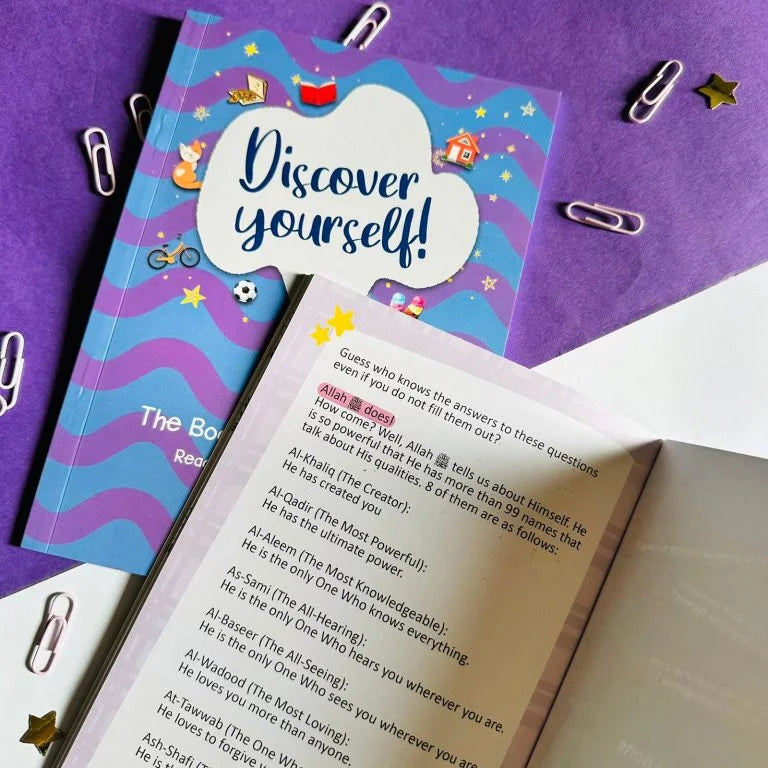 Discover
yourself!
The
Guess who knows the answers to these questions
even if you do not fill them out?
Allah ﷻ does!
How come? Well, Allah ﷻ tells us about Himself. He
is so powerful that He has more than 99 names that
talk about His qualities. 8 of them are as follows:
Al-Khaliq (The Creator):
He has created you
Al-Qadir (The Most Powerful):
He has the ultimate power.
Al-Aleem (The Most Knowledgeable):
He is the only One Who knows everything.
As-Sami (The All-Hearing):
He is the only One Who hears you wherever you are.
Al-Baseer (The All-Seeing):
He is the only One Who sees you wherever you are
Al-Wadood (The Most Loving):
He loves you more than anyone.
At-Tawwab (The One Who
He loves to forgive
Ash-Shafi
He is